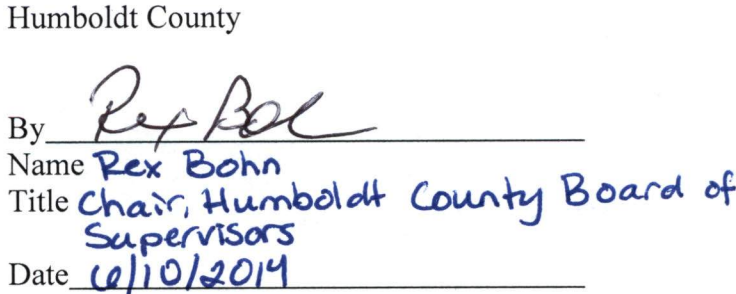 Humboldt County
By Rex Bohn
Name Rex Bohn
Title Chair, Humboldt County Board of
Supervisors
Date 6/10/2014